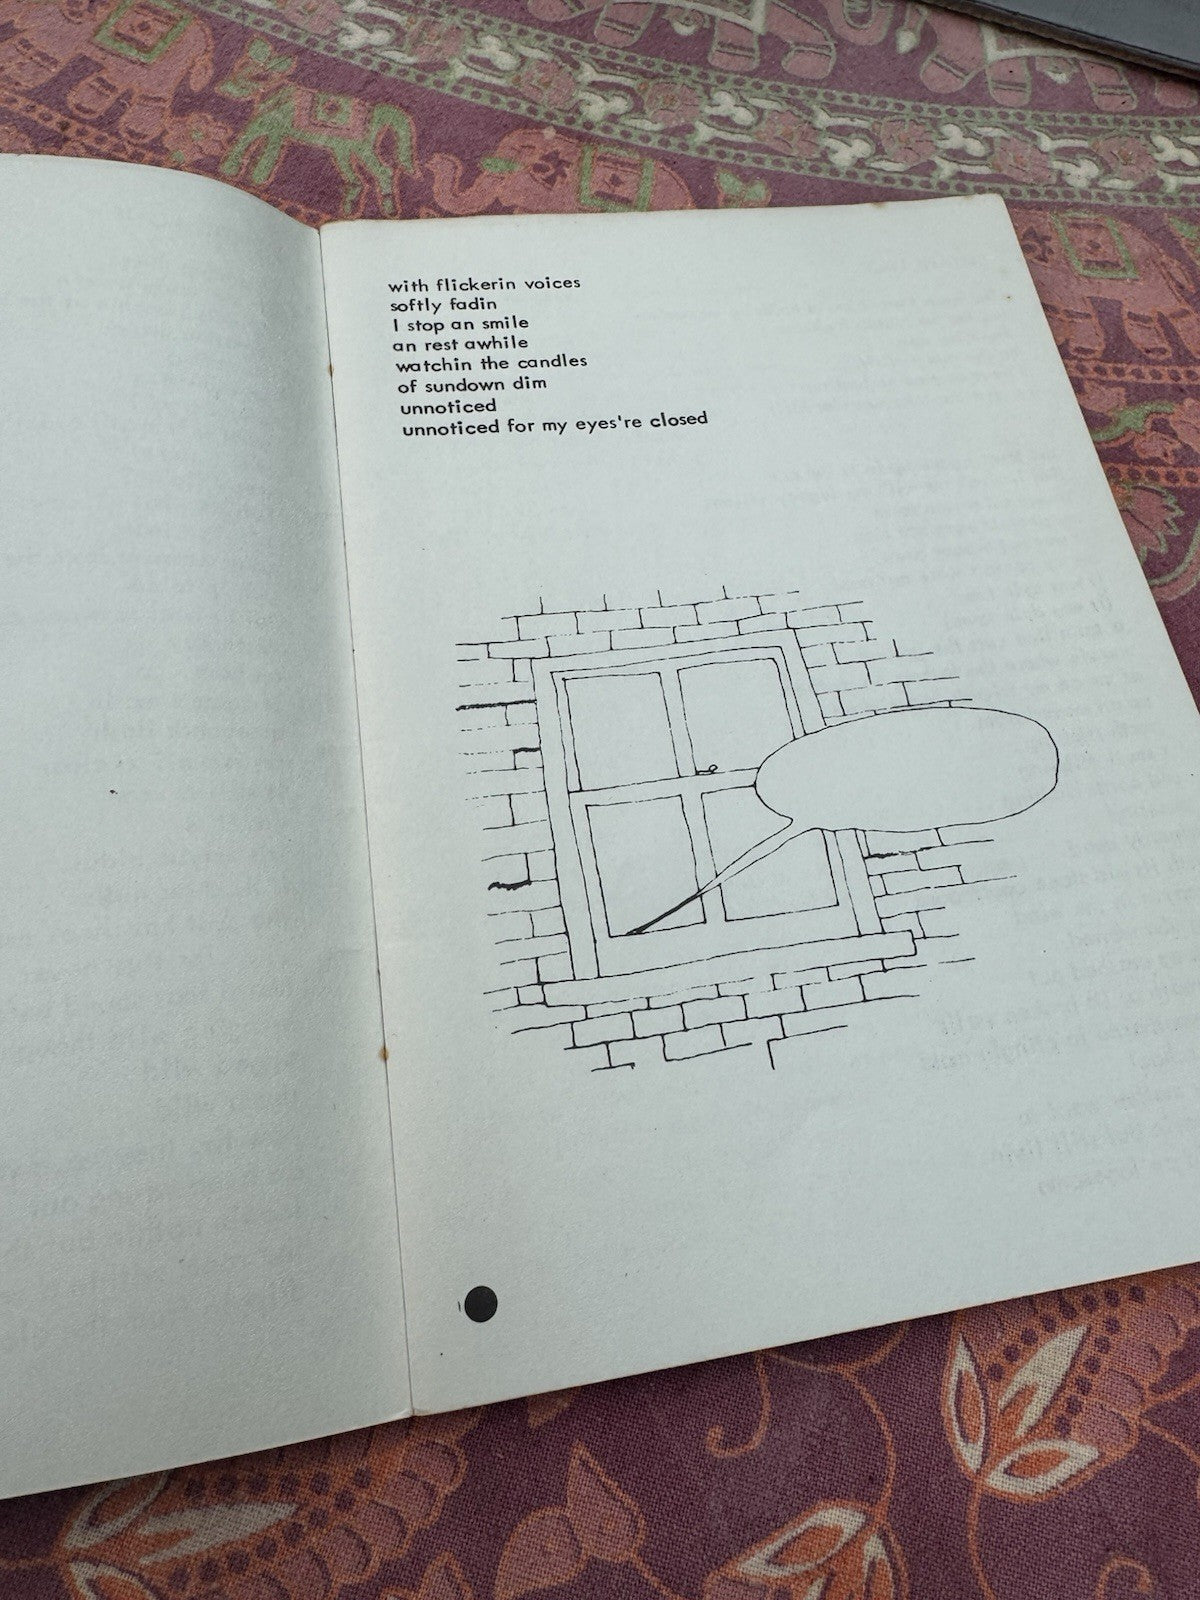 with flickerin voices
softly fadin
I stop an smile
an rest awhile
watchin the candles
of sundown dim
unnoticed
unnoticed for my eyes're closed